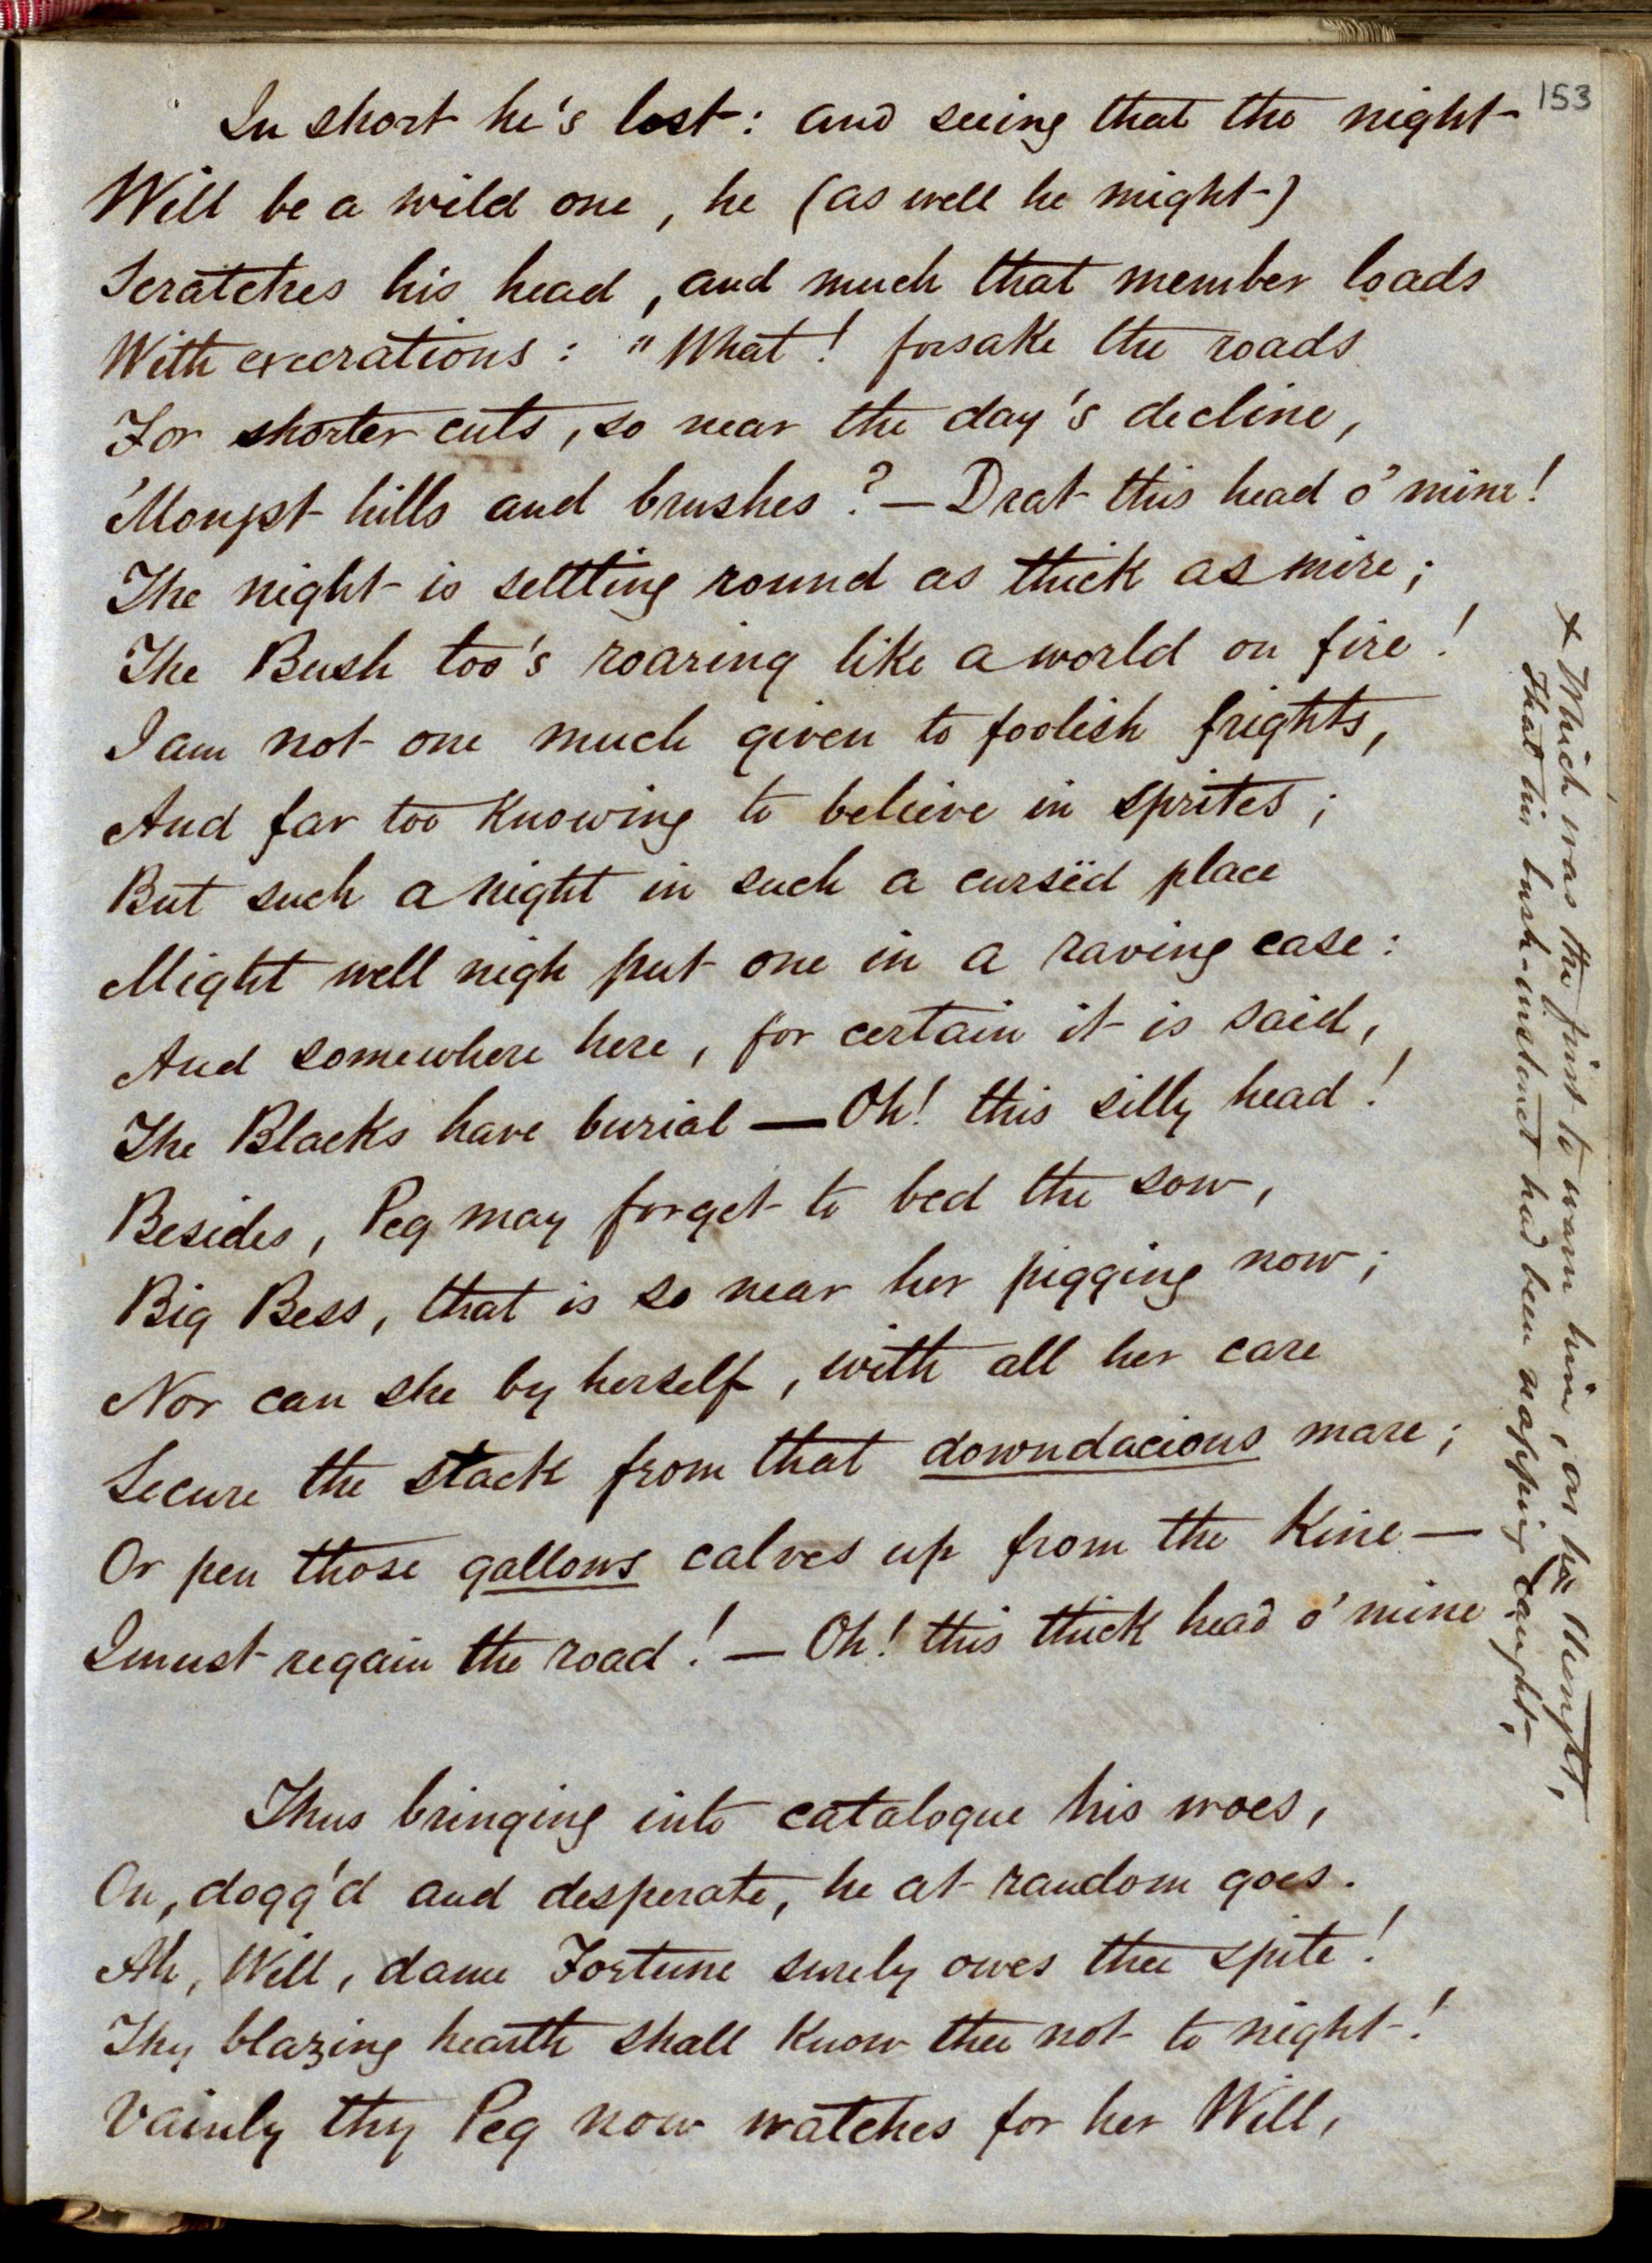 153
In short he's lost: and seeing that the night
Will be a wild one, he (as well he might)
Scratches his head, and much that member loads
With execrations: "What! forsake the roads
For shorter cuts, so near the day's decline,
'Mongst hills and brushes? — Drat this head o' mine!
The night is settling round as thick as mire;
The Bush too's roaring like a world on fire!
I am not one much given to foolish frights,
And far too knowing to believe in sprites;
But such a night in such a cursëd place
Might well nigh put one in a raving case:
And somewhere here, for certain it is said,
The Blacks have burial — Oh! this silly head!
Besides, Peg may forget to bed the sow,
Big Bess, that is so near her pigging now;
Nor can she by herself, with all her care
Secure the stack from that downdacious mare;
Or pen those gallows calves up from the Kine —
I must regain the road! — Oh! this thick head o' mine
Thus bringing into catalogue his woes,
On, dogg'd and desperate, he at random goes.
Ah, Will, dame Fortune surely owes thee spite!
Thy blazing hearth shall know thee not to night!
Vainly thy Peg now watches for her Will,
x Which was the first to warn him, as he thought,
That his bush-instinct had been napping caught,